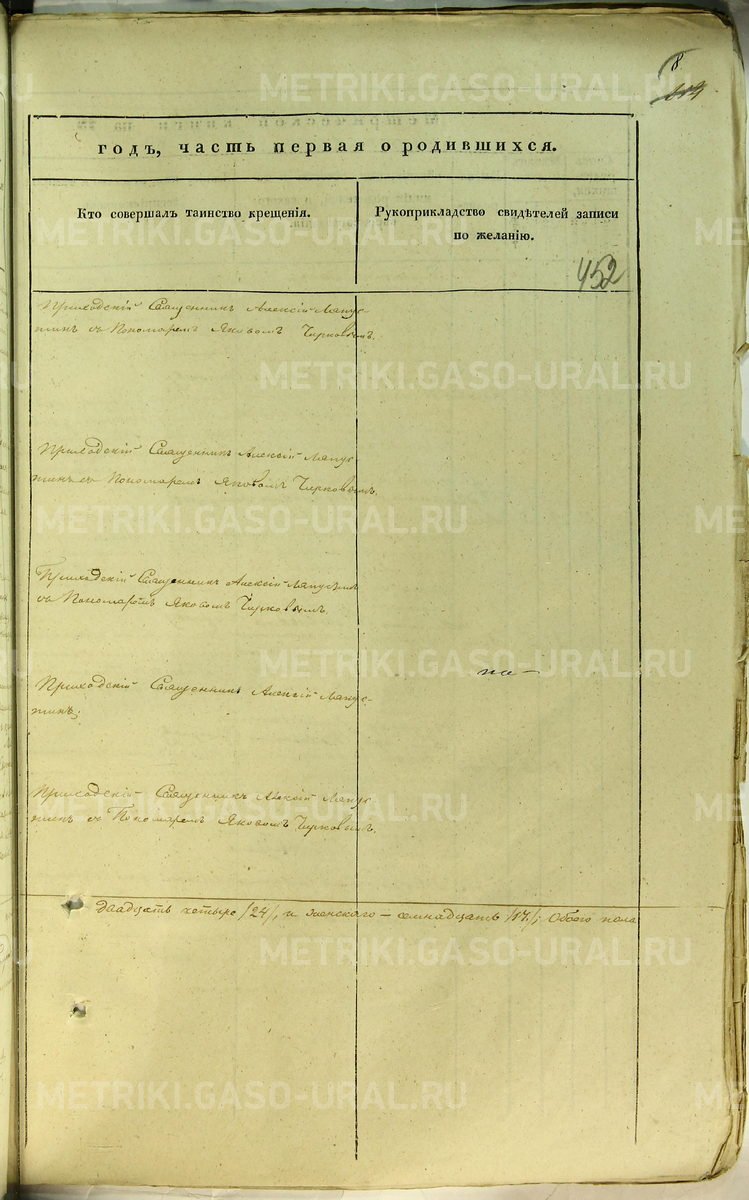 8
годъ, часть первая о родившихся.
Кто совершалъ таинство крещенія.
Рукоприкладство свидѣтелей записи
по желанію.
452
Приходскій Священникъ Алексій Лапус-
тинъ съ Пономаремъ Яковомъ Чирковымъ.
Приходскій Священникъ Алексій Лапус-
тинъ съ Пономаремъ Яковомъ Чирковымъ.
Приходскій Священникъ Алексій Лапустинъ
съ Пономаремъ Яковомъ Чирковымъ.
Приходскій Священникъ Алексій Лапус-
тинъ;
Приходскій Священникъ Алексій Лапус
тинъ съ Пономаремъ Яковомъ Чирковымъ.
двадцать четыре /24/, и женскаго — семнадцать /17/; Обоего пола
METRIKI.GASO-URAL.RU